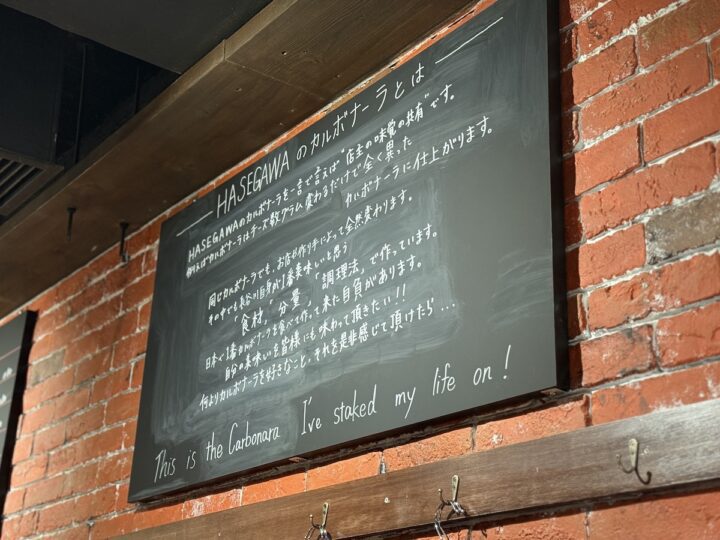 HASEGAWAのカルボナーラとは
HASEGAWAのカルボナーラを一言で言えば“店主の味覚の共有”です。
例えばカルボナーラはチーズ数グラム変わるだけで全く異った
カルボナーラに仕上がります。
同じカルボナーラでも、お店や作り手によって全然変わります。
その中でも長谷川自身が1番美味しいと思う
「食材」「分量」「調理法」で作っています。
日本で1番カルボナーラを食べて作って来た自負があります。
自分の美味しいを皆様にも味わって頂きたい!!
何よりカルボナーラを好きなこと、それを是非感じて頂けたら...
This is the Carbonara I've staked my life on!